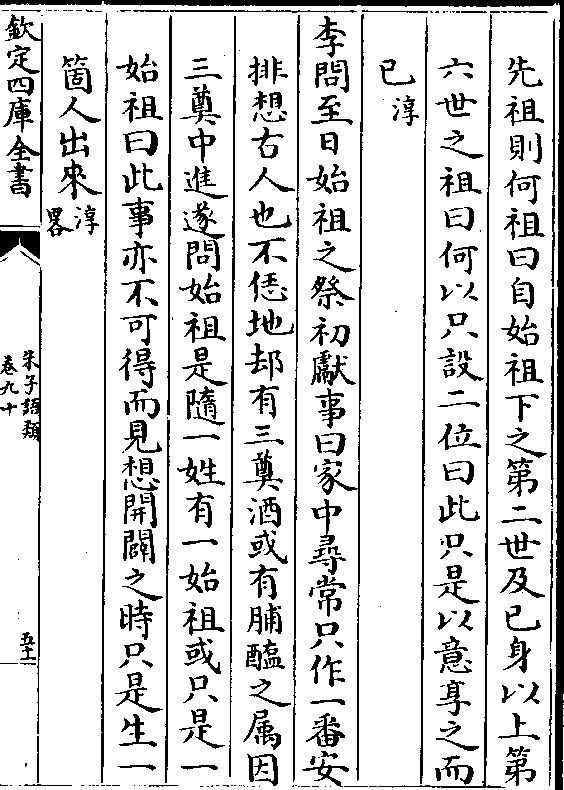 先祖則何祖曰自始祖下之第二世及已身以上第
六世之祖曰何以只設二位曰此只是以意享之而
已淳
李問至日始祖之祭初獻事曰家中尋常只作一番安
排想古人也不恁地却有三奠酒或有脯醢之属因
三奠中進遂問始祖是隨一姓有一始祖或只是一
始祖曰此事亦不可得而見想開闢之時只是生一
箇人出來淳畧
欽定四庫全書
朱子語類
卷九十
五十一